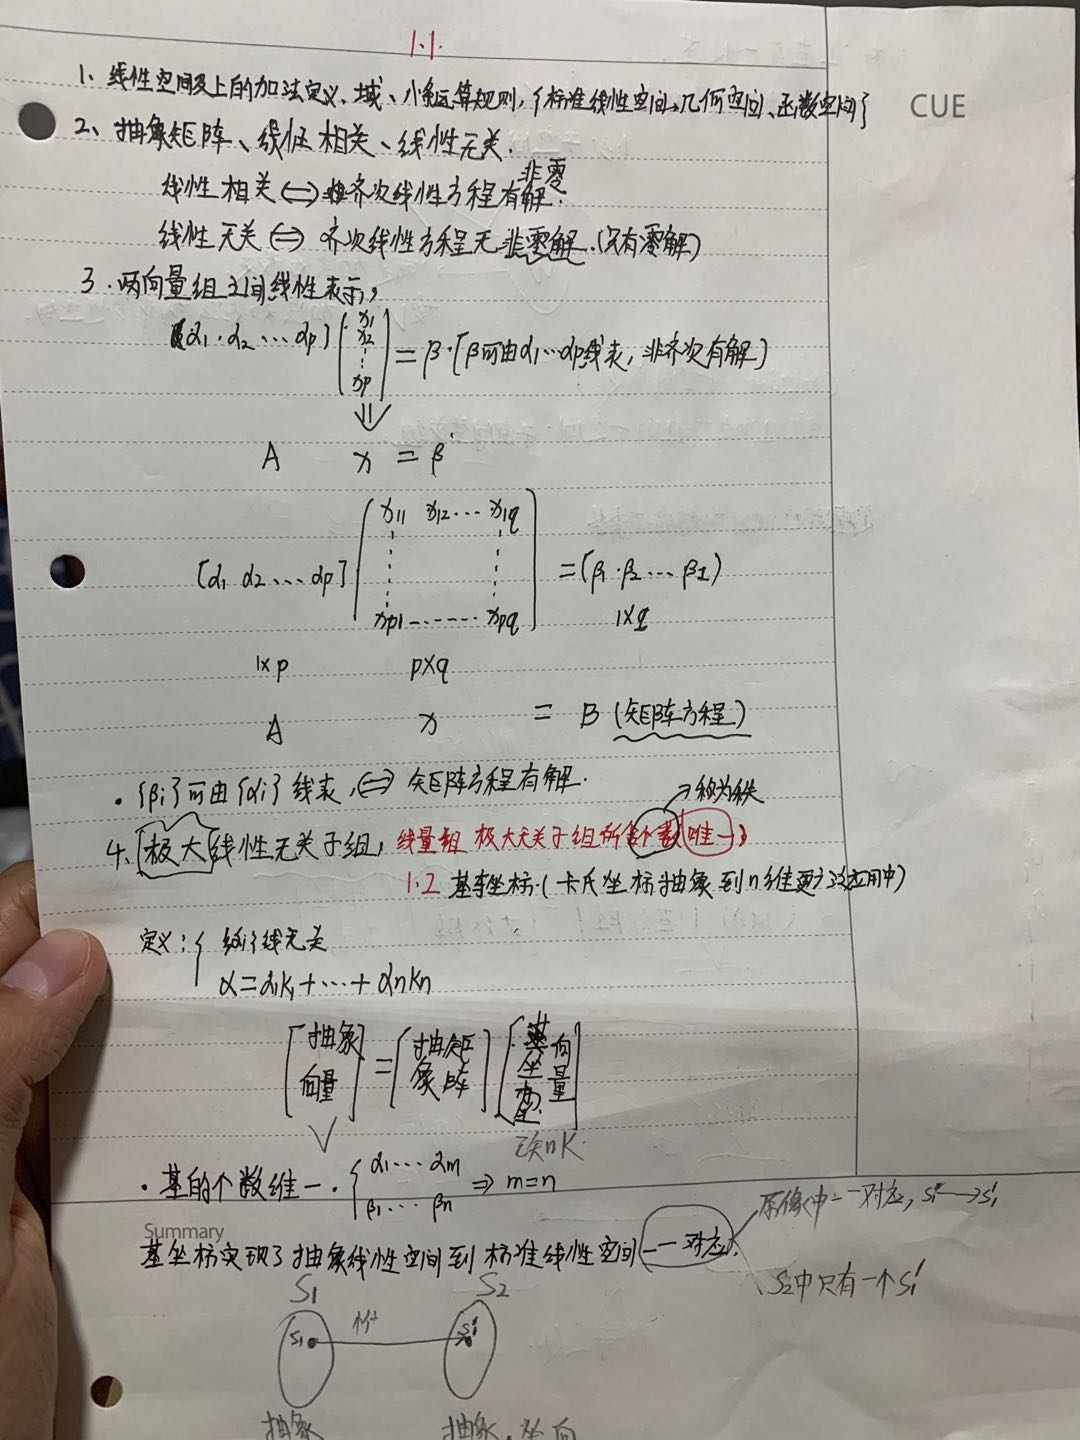 1.1.
1、线性空间及上的加法定义、域、八条运算规则,{标准线性空间、几何空间、函数空间}
CUE
2、抽象矩阵、线性相关、线性无关.
线性相关⇔齐次线性方程有非零解.
线性无关⇔齐次线性方程无非零解.(只有零解)
3.两向量组之间线性表示,
[α1·α2…αp] [x1 x2 ⋮ xp] = β·[β可由α1…αp线表,非齐次有解]
⇓
A x = β
[α1 α2…αp] [x11 x12…x1q ⋮ ⋮ xp1……xpq] = (β1·β2…βq)
1×q
1×p p×q
A x = B (矩阵方程)
·{βi}可由{αi}线表,⇔矩阵方程有解.
→称为秩
4、极大线性无关子组, 极大无关子组所含个数唯一
1.2 基与坐标(卡氏坐标抽象到n维更方泛应用中)
定义: { 线无关
α=α1k1+…+αnkn
[抽象向量] = [抽象矩阵] [坐 向量]
·基的个数维一. { α1…αm β1…βn ⇒ m=n
Summary
基坐标实现了抽象线性空间到标准线性空间一一对应.
S2中只有一个S1'
S1 S2
S1 S1'
抽象 抽象.